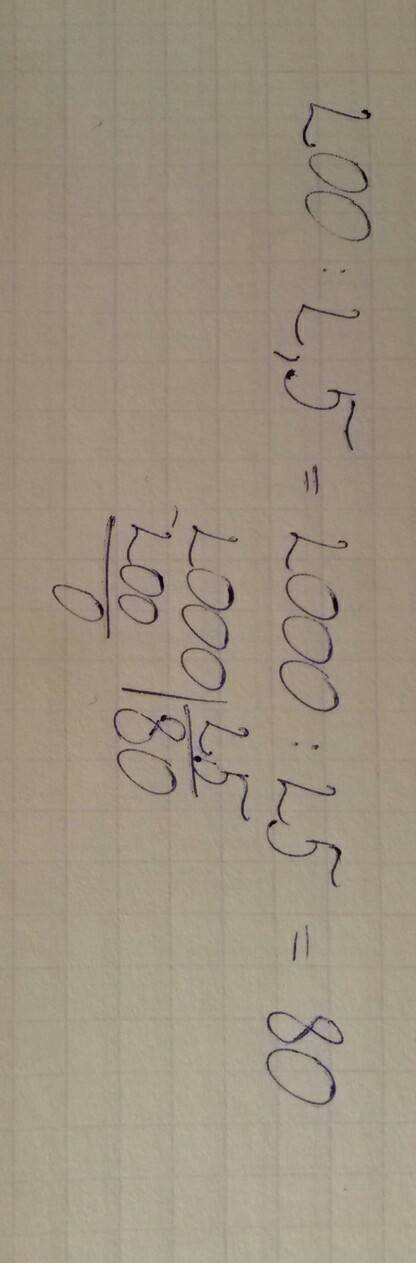 200 : 2,5 = 2000 : 25 = 80
2000 | 25
- 200 | 80
0